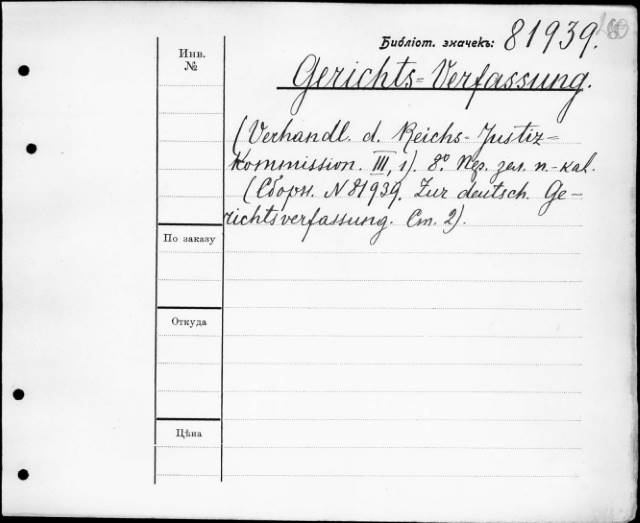 Библіот. значекъ: 81939.
Инв.
№
Gerichts=Verfassung.
(Verhandl. d. Reichs-Justiz=
Kommission. III, 1). 8º. зел. п.-кал.
(Сборн. № 81939. Zur deutsch. Ge-
richtsverfassung. Ст. 2).
По заказу
Откуда
Цѣна